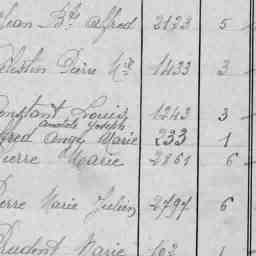 Jean Bte Alfred 2123 5
Célestin Pierre Mie 1433 3
Constant Louis 1243 3
Anatole Joseph
Alfred Ange Marie 233 1
Pierre Marie 2861 6
Pierre Marie Julien 2797 6
Prudent Marie 162 1